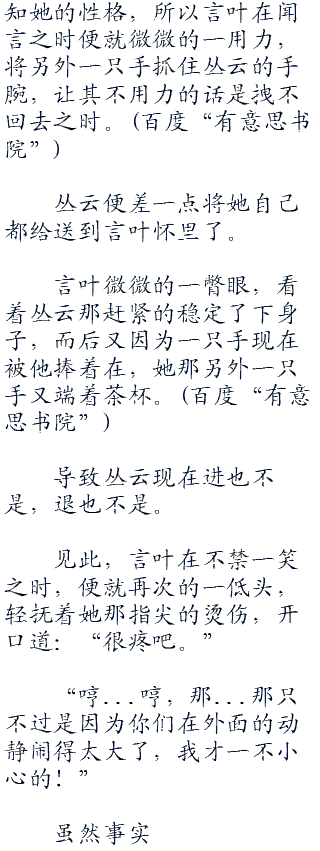 知她的性格，所以言叶在闻
言之时便就微微的一用力，
将另外一只手抓住丛云的手
腕，让其不用力的话是拽不
回去之时。(百度“有意思书
院”)
丛云便差一点将她自己
都给送到言叶怀里了。
言叶微微的一瞥眼，看
着丛云那赶紧的稳定了下身
子，而后又因为一只手现在
被他捧着在，她那另外一只
手又端着茶杯。(百度“有意
思书院”)
导致丛云现在进也不
是，退也不是。
见此，言叶在不禁一笑
之时，便就再次的一低头，
轻抚着她那指尖的烫伤，开
口道：“很疼吧。”
“哼...哼，那...那只
不过是因为你们在外面的动
静闹得太大了，我才一不小
心的！”
虽然事实